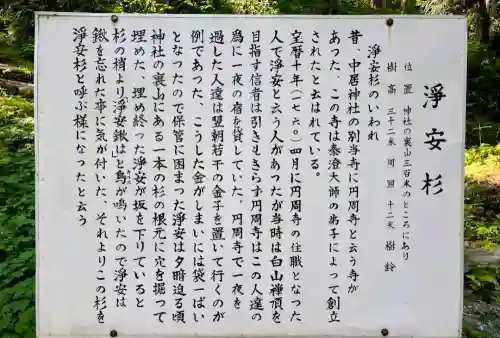 淨安杉
位置 神社の裏山三百米のところにあり
樹高 三十二米 周囲 十二米 樹齢
淨安杉のいわれ
昔、中居神社の別当寺に円周寺と云う寺が
あった、この寺は泰澄大師の弟子によって創立
されたと云はれている。
宝暦十年(一七六〇)四月に円周寺の住職となった
人で淨安と云う人があったが当時は白山禅頂を
目指す信者は引きもきらず円周寺はこの人達の
為に一夜の宿を貸していた、円周寺で一夜を
過した人達は翌朝若干の金子を置いて行くのが
例であった、こうした金がしまいには袋一ぱい
となったので保管に困まった淨安は夕暗迫る頃
神社の裏山にある一本の杉の根元に穴を掘って
埋めた、埋め終った淨安が坂を下りていると
杉の梢より淨安鍬はと鳥が鳴いたので淨安は
鍬を忘れた事に気が付いた、それよりこの杉を
淨安杉と呼ぶ様になったと云う